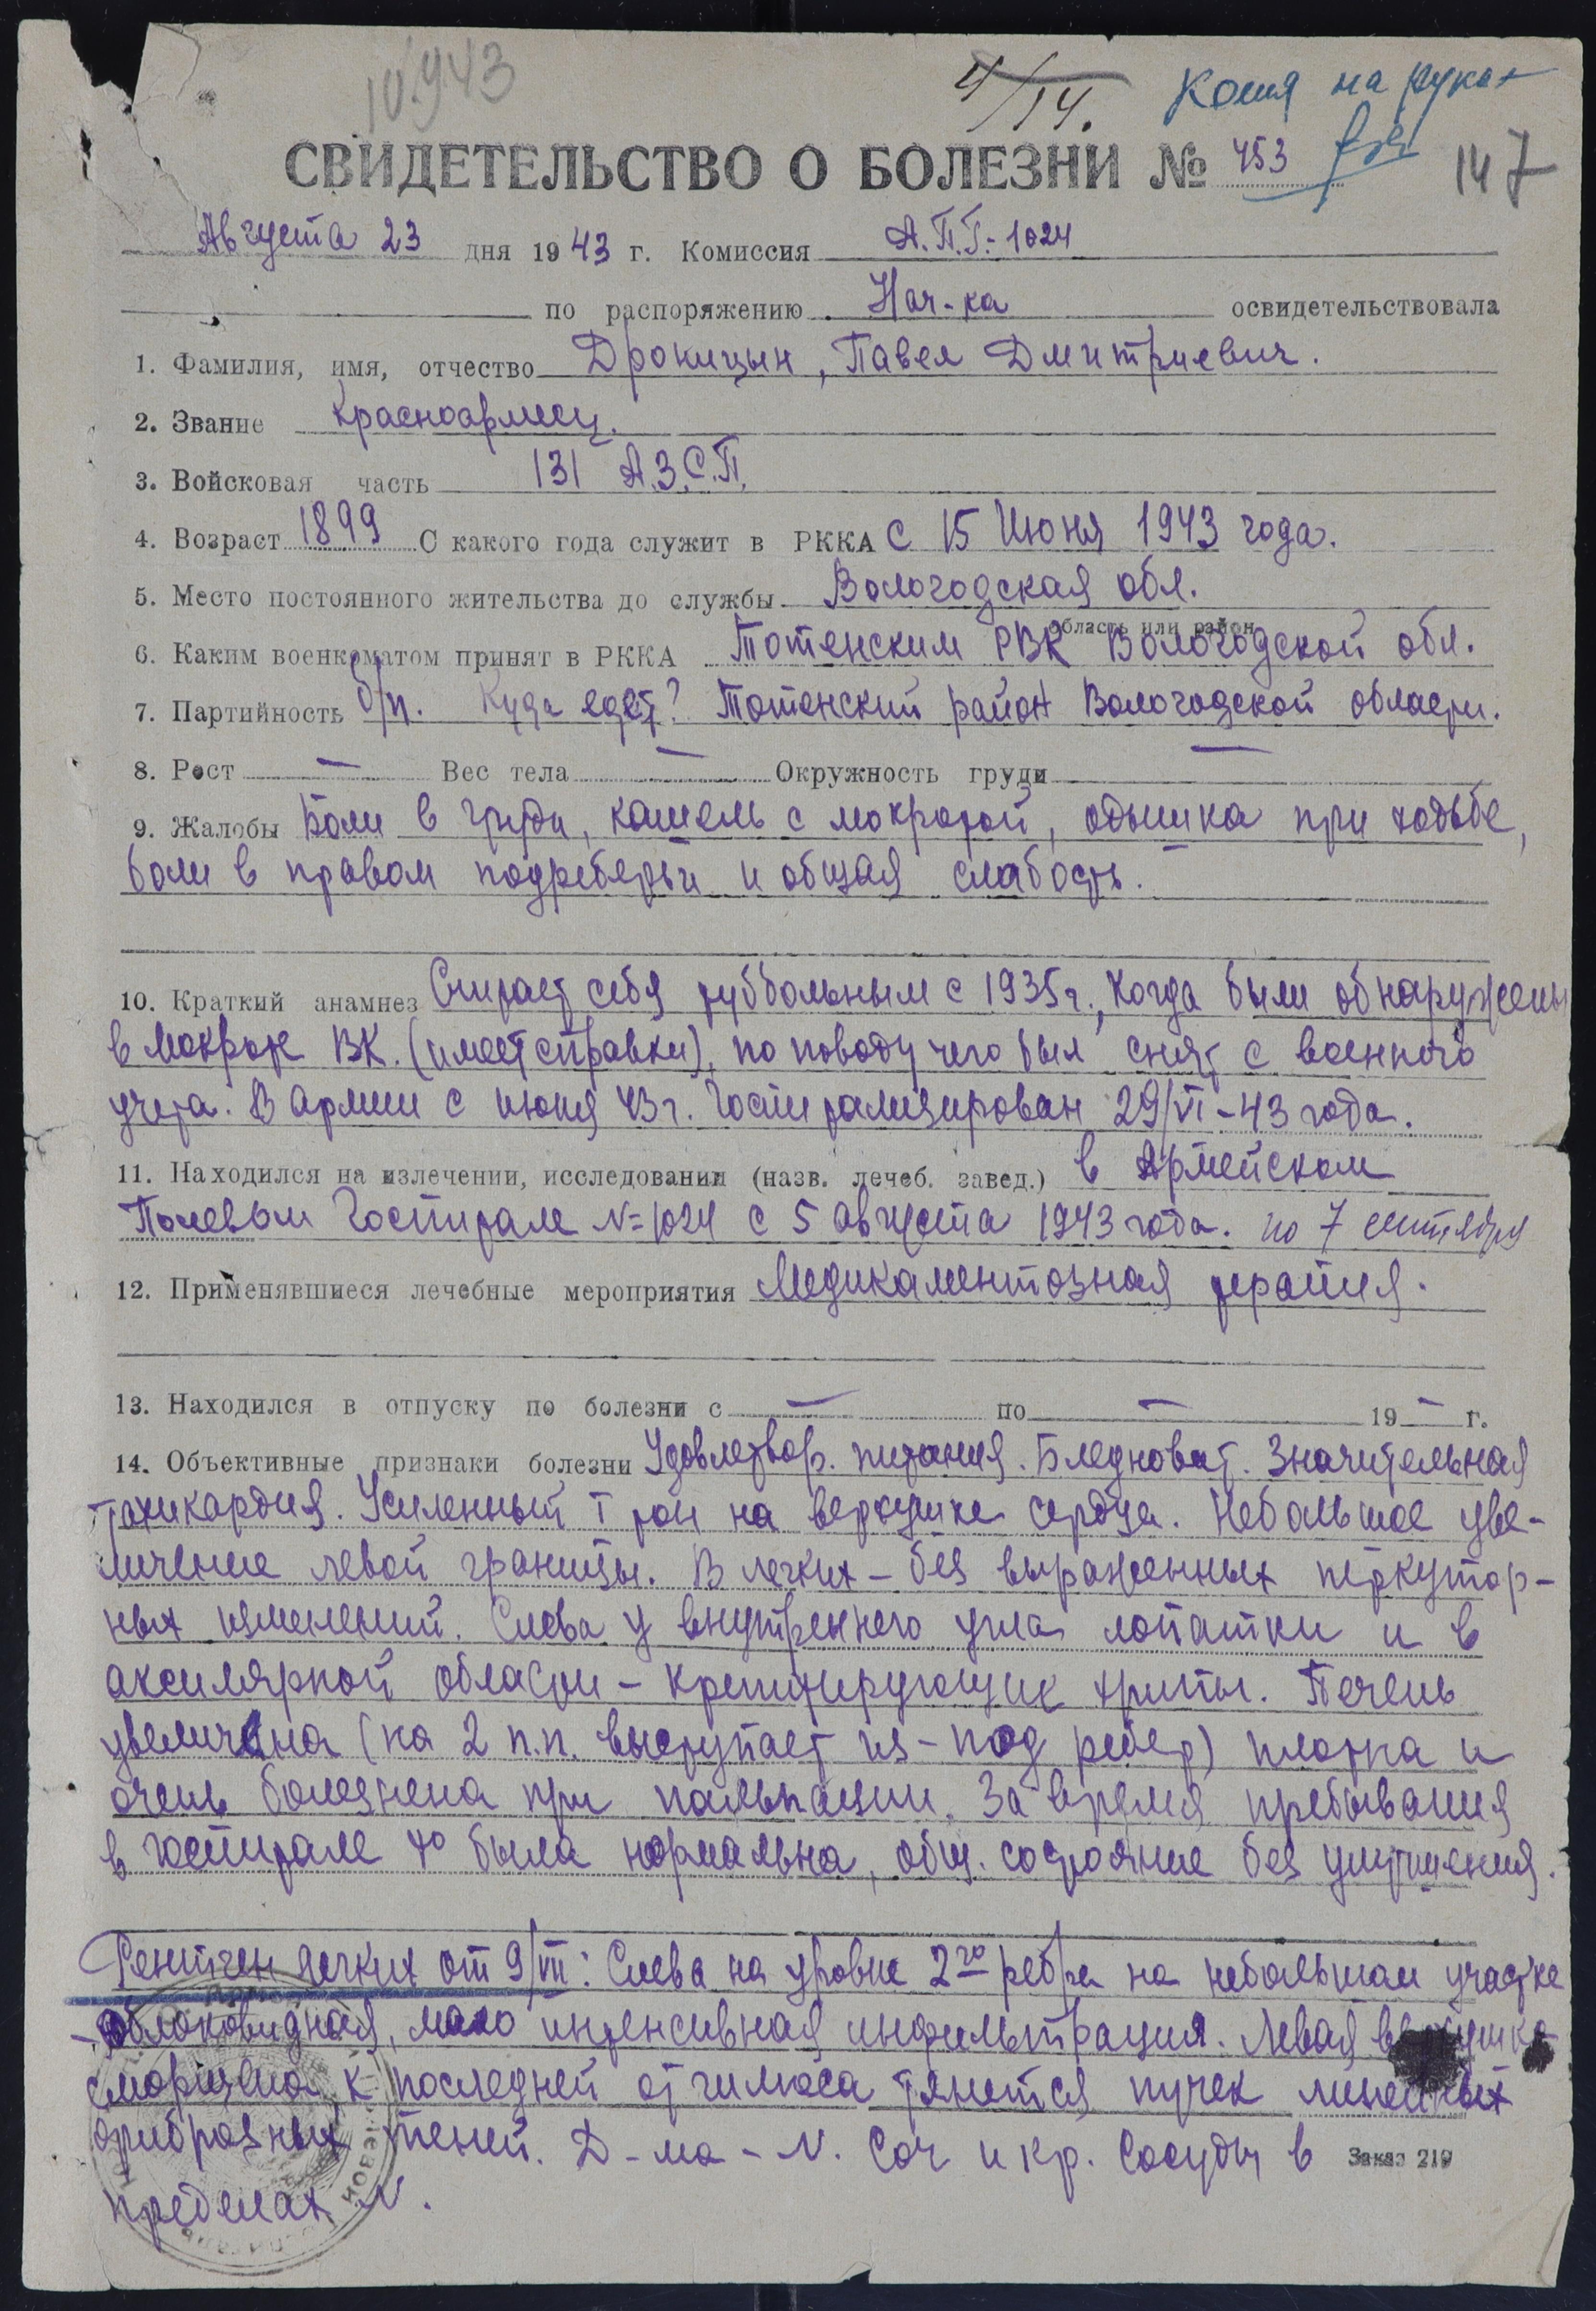 10.9.43
4/14. Копия на руках
СВИДЕТЕЛЬСТВО О БОЛЕЗНИ № 453
147
Августа 23 дня 1943 г. Комиссия А.П.Г.-1024
по распоряжению Нач-ка освидетельствовала
1. Фамилия, имя, отчество Дрокицын, Павел Дмитриевич.
2. Звание Красноармеец.
3. Войсковая часть 131 А.З.С.П.
4. Возраст 1899 С какого года служит в РККА с 15 Июня 1943 года.
5. Место постоянного жительства до службы Вологодская обл.
область или район
6. Каким военкоматом принят в РККА Тотенским РВК Вологодской обл.
7. Партийность б/п. Куда едет? Тотенский район Вологодской области.
8. Рост — Вес тела — Окружность груди —
9. Жалобы Боли в груди, кашель с мокротой, одышка при ходьбе,
боли в правом подреберьи и общая слабость.
10. Краткий анамнез Считает себя тубольным с 1935 г., когда были обнаружены
в мокроте ВК. (имеет справки), по поводу чего был снят с военного
учета. В Армии с июня 43 г. Госпитализирован 29/VI-43 года.
11. Находился на излечении, исследовании (назв. лечеб. завед.) в Армейском
Полевом Госпитале №=1024 с 5 августа 1943 года. по 7 сентября
12. Применявшиеся лечебные мероприятия Медикаментозная терапия.
13. Находился в отпуску по болезни с — по — 19 — г.
14. Объективные признаки болезни Удовлетвор. питания. Бледноват. Значительная
тахикардия. Усиленный I тон на верхушке сердца. Небольшое уве-
личение левой границы. В легких – без выраженных перкутор-
ных изменений. Слева у внутреннего угла лопатки и в
аксилярной области – крепитирующие хрипы. Печень
увеличена (на 2 п.п. выступает из-под ребер) плотна и
очень болезнена при пальпации. За время пребывания
в госпитале t° была нормальна, общ. состояние без улучшения.
Рентген легких от 9/VII: Слева на уровне 2го ребра на небольшом участке
– облаковидная, мало интенсивная инфильтрация. Левая верхушка
сморщена, к последней от гилюса тянется пучек линейных
фиброзных теней. Д-ма – N. Cor и кр. сосуды в
пределах N.
Заказ 219